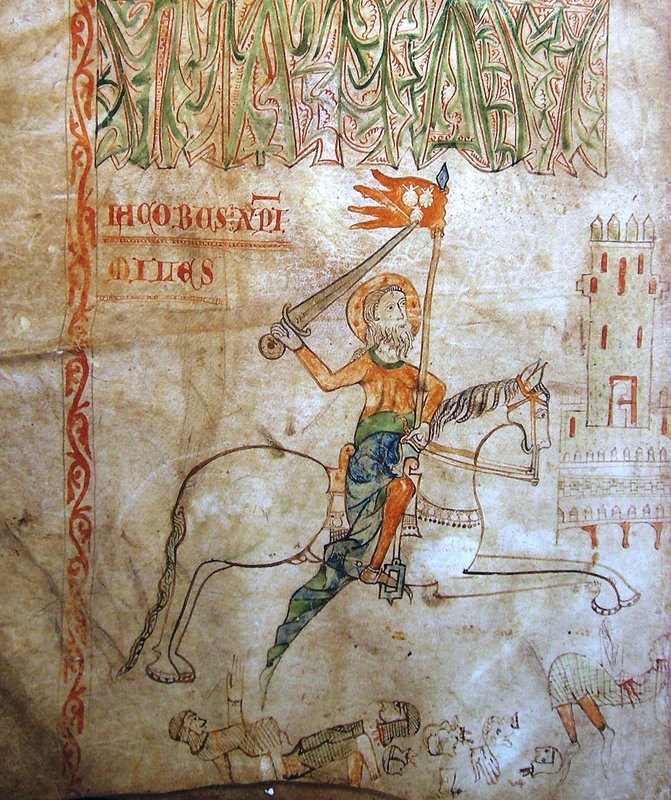 IACOBUS : XPI.
MILES